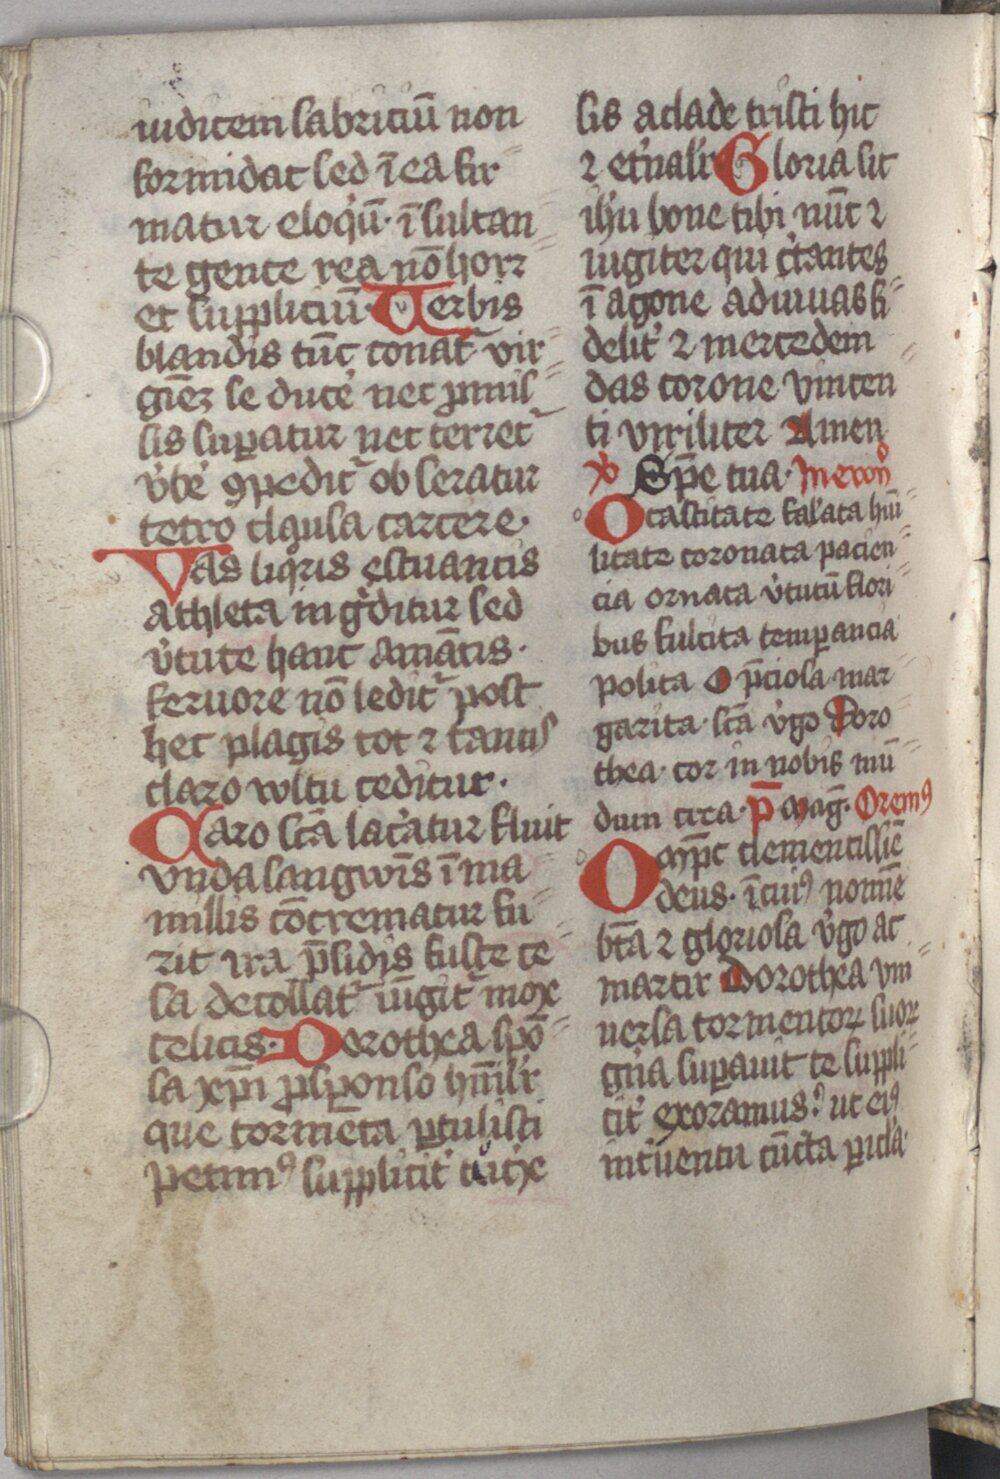 iudicem fabriciū non
formidat sed ī ea fir
matur eloqͥū· īsultan
te gente rea nō horr
et suppliciū· Uerbis
blandis tūc conat᷑ vir
giēꝫ se duce᷑ nec ꝓmis
sis suꝑatur nec terret᷑
v᷑be᷑ ꝯpedit᷑ obseratur
tetro clausa carcere·
Vas liqͦris estuantis
athleta ingͣditur sed
v᷑tute hanc amātis·
feruore nō ledit᷑ post
hec plagis tot ⁊ tantis
claro vvltu ceditur·
Caro scā lac᷑atur fluit
vnda sangwīs ī ma
millis cōcrematur fu
rit ira p̄sidis fuste ce
sa decollat᷑ iūgit᷑ mox
celicis· Dorothea spō
sa xp̄i ꝓ sponso hūil᷑r
que tormēta ꝑtulisti
petimꝰ supplicit᷑
sis a clade tristi hic
⁊ et᷑nal᷑r Gloria sit
ih᷑u bone tibi nūc ⁊
iugiter qui c᷑tantes
ī agone adiuuas fi
delit᷑ ⁊ mercedem
das corone vincen
ti viriliter Amen
℣ Spē tua·
O castitate fal᷑ata hūi
litate coronata pacien
cia ornata v᷑tutū flori
bus fulcita temperancia
polita O p̄ciosa mar
garita· scā v᷑go Doro
thea· cor in nobis mū
dum crea· p̄ mag̅· Oremꝰ
O mp̄c clementissīe
deus· ī cuiꝰ nomīe
btā ⁊ gloriosa v᷑go ac
martir Dorothea vni
uersa tormentoꝝ suoꝝ
gn᷑a suꝑauit te suppli
cit᷑ exoramus· ut eiꝰ
int᷑uentu cūcta ꝑic᷑la